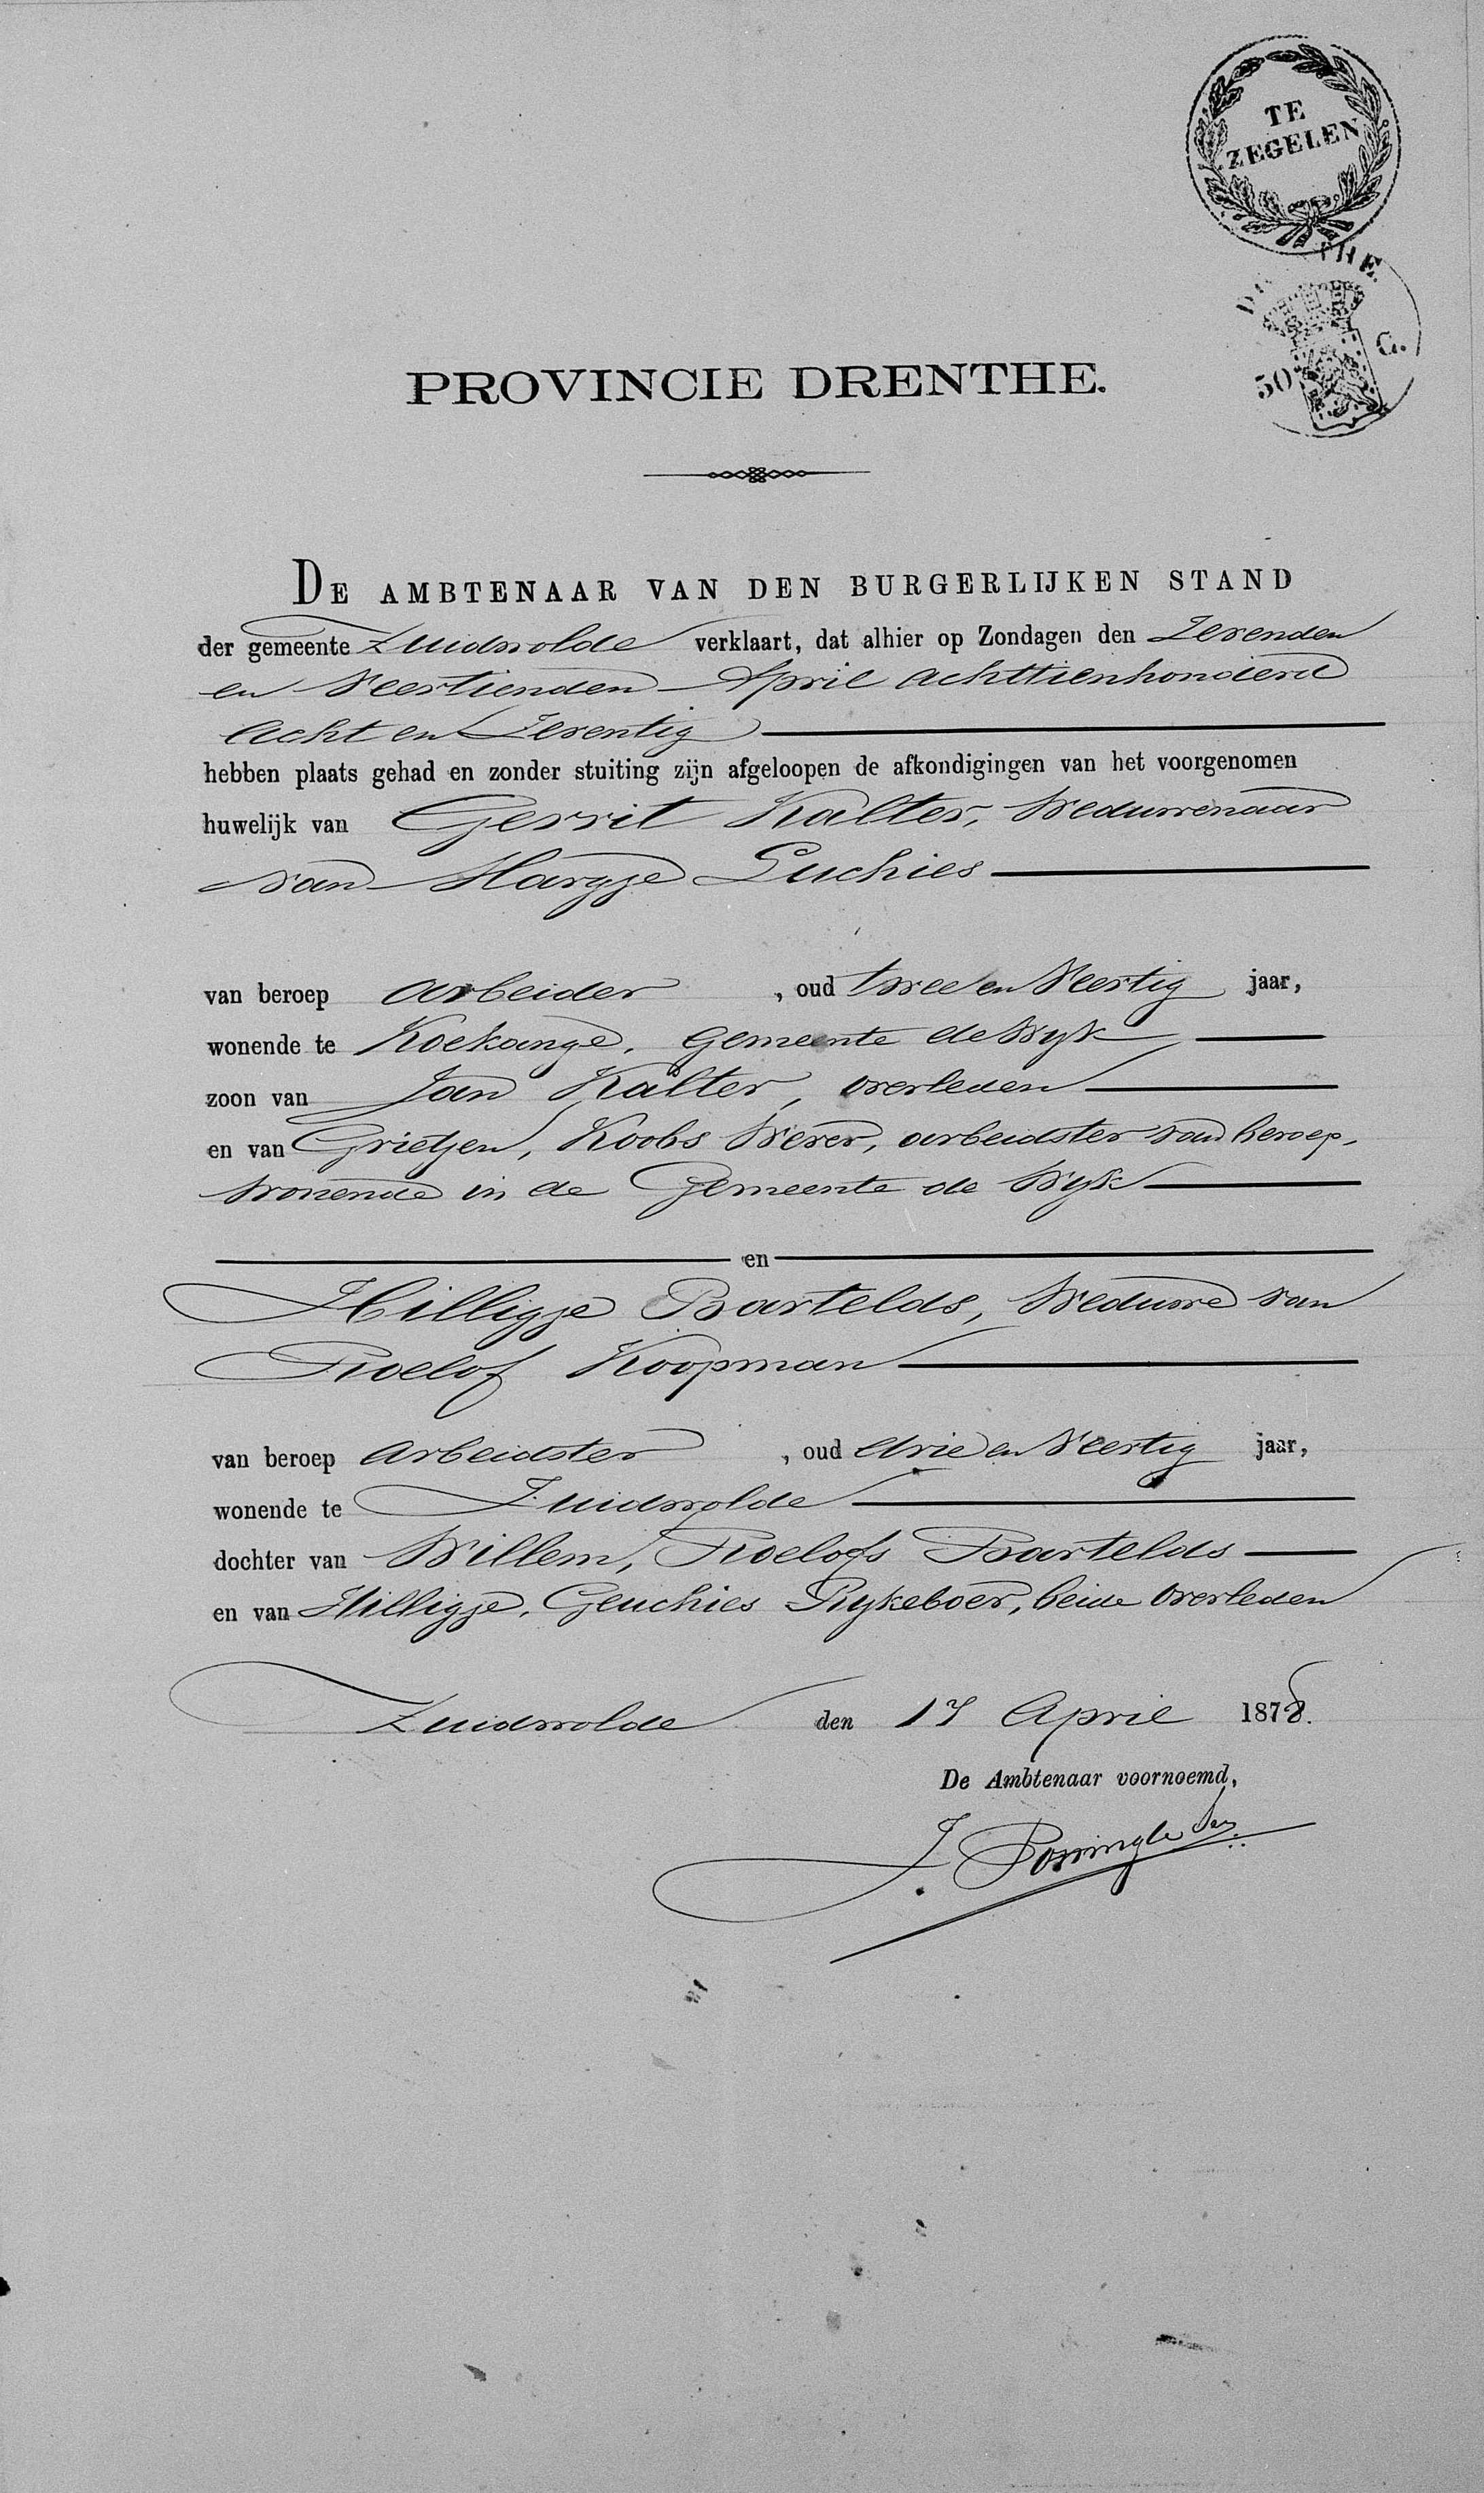 TE
ZEGELEN
THE.
50 C.
PROVINCIE DRENTHE.
DE AMBTENAAR VAN DEN BURGERLIJKEN STAND
der gemeente Zuidwolde verklaart, dat alhier op Zondagen den Zevenden
en Veertienden April Achttienhonderd
Acht en Zeventig
hebben plaats gehad en zonder stuiting zijn afgeloopen de afkondigingen van het voorgenomen
huwelijk van Gerrit Kalter, Weduwenaar
van Harmje Luchies
van beroep arbeider, oud twee en Veertig jaar,
wonende te Koekange, Gemeente de Wyk
zoon van Jan Kalter, overleden
en van Grietjen, Koobs Wever, arbeidster van beroep,
wonende in de Gemeente de Wyk
en
Hilligje Bartelds, Weduwe van
Roelof Koopman
van beroep Arbeidster, oud drie en Veertig jaar,
wonende te Zuidwolde
dochter van Willem, Roelofs Bartelds
en van Hilligje, Geuchies Rykeboer, beide overleden
Zuidwolde den 17 April 1878.
De Ambtenaar voornoemd,
J.